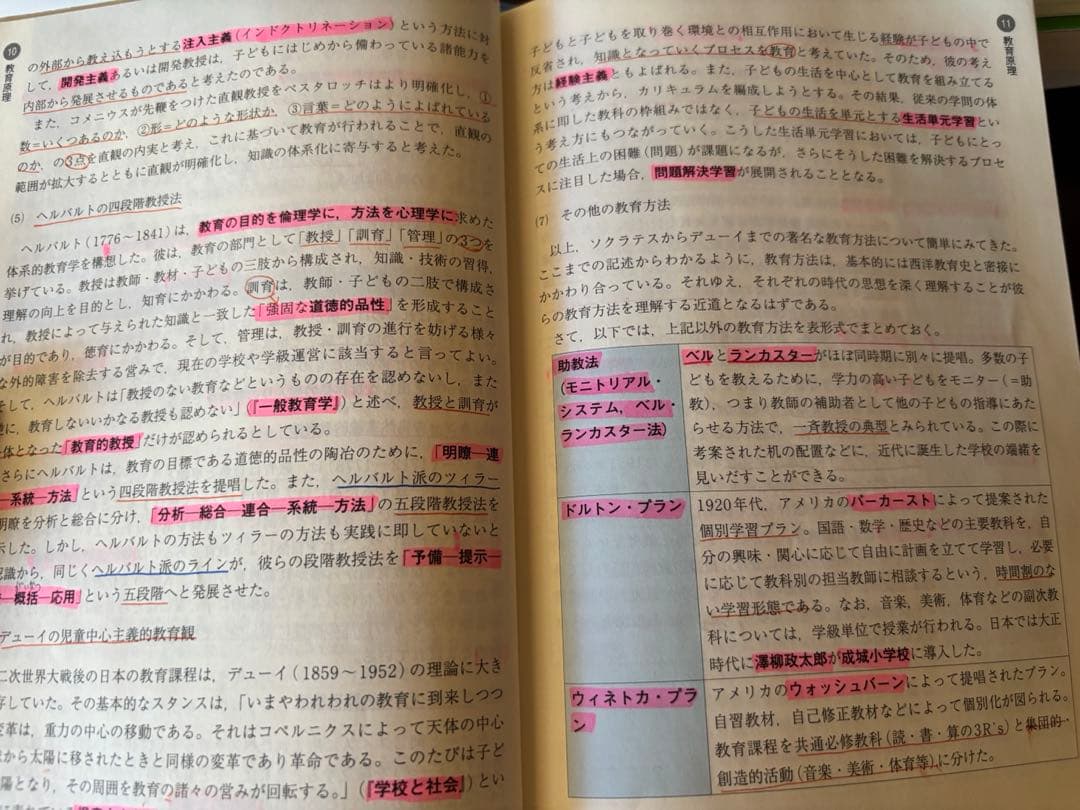 10
教育原理
の外部から教え込もうとする注入主義(インドクトリネーション)という方法に対
して，開発主義あるいは開発教授は，子どもにはじめから備わっている諸能力を
内部から発展させるものであると考えたのである。
また，コメニウスが先鞭をつけた直観教授をペスタロッチはより明確化し，①
数＝いくつあるのか，②形＝どのような形状か，③言葉＝どのようによばれている
のか，の3点を直観の内実と考え，これに基づいて教育が行われることで，直観の
範囲が拡大するとともに直観が明確化し，知識の体系化に寄与すると考えた。
(5) ヘルバルトの四段階教授法
ヘルバルト(1776〜1841)は，教育の目的を倫理学に，方法を心理学に求めた
体系的教育学を構想した。彼は，教育の部門として「教授」「訓育」「管理」の3つを
挙げている。教授は教師・教材・子どもの三肢から構成され，知識・技術の習得，
理解の向上を目的とし，知育にかかわる。訓育は，教師・子どもの二肢で構成さ
れ，教授によって与えられた知識と一致した「強固な道徳的品性」を形成すること
が目的であり，徳育にかかわる。そして，管理は，教授・訓育の進行を妨げる様々
な外的障害を除去する営みで，現在の学校や学級運営に該当すると言ってよい。
そして，ヘルバルトは「教授のない教育などというものの存在を認めないし，また
に，教育しないいかなる教授も認めない」(『一般教育学』)と述べ，教授と訓育が
体となった「教育的教授」だけが認められるとしている。
さらにヘルバルトは，教育の目標である道徳的品性の陶冶のために，「明瞭―連
―系統―方法」という四段階教授法を提唱した。また，ヘルバルト派のツィラー
明瞭を分析と総合に分け，「分析―総合―連合―系統―方法」の五段階教授法を
示した。しかし，ヘルバルトの方法もツィラーの方法も実践に即していないと
認識から，同じくヘルバルト派のラインが，彼らの段階教授法を「予備―提示―
―概括―応用」という五段階へと発展させた。
デューイの児童中心主義的教育観
二次世界大戦後の日本の教育課程は，デューイ(1859〜1952)の理論に大き
存していた。その基本的なスタンスは，「いまやわれわれの教育に到来しつつ
変革は，重力の中心の移動である。それはコペルニクスによって天体の中心
から太陽に移されたときと同様の変革であり革命である。このたびは子ど
陽となり，その周囲を教育の諸々の営みが回転する。」(『学校と社会』)とい
11
教育原理
子どもと子どもを取り巻く環境との相互作用において生じる経験が子どもの中で
反省され，知識となっていくプロセスを教育と考えていた。そのため，彼の考え
方は経験主義ともよばれる。また，子どもの生活を中心として教育を組み立てる
という考えから，カリキュラムを編成しようとする。その結果，従来の学問の体
系に即した教科の枠組みではなく，子どもの生活を単元とする生活単元学習とい
う考え方にもつながっていく。こうした生活単元学習においては，子どもにとっ
ての生活上の困難(問題)が課題になるが，さらにそうした困難を解決するプロセ
スに注目した場合，問題解決学習が展開されることとなる。
(7) その他の教育方法
以上，ソクラテスからデューイまでの著名な教育方法について簡単にみてきた。
ここまでの記述からわかるように，教育方法は，基本的には西洋教育史と密接に
かかわり合っている。それゆえ，それぞれの時代の思想を深く理解することが彼
らの教育方法を理解する近道となるはずである。
さて，以下では，上記以外の教育方法を表形式でまとめておく。
助教法
(モニトリアル・
システム，ベル・
ランカスター法)
ベルとランカスターがほぼ同時期に別々に提唱。多数の子
どもを教えるために，学力の高い子どもをモニター(＝助
教)，つまり教師の補助者として他の子どもの指導にあた
らせる方法で，一斉教授の典型とみられている。この際に
考案された机の配置などに，近代に誕生した学校の端緒を
見いだすことができる。
ドルトン・プラン
1920年代，アメリカのパーカーストによって提案された
個別学習プラン。国語・数学・歴史などの主要教科を，自
分の興味・関心に応じて自由に計画を立てて学習し，必要
に応じて教科別の担当教師に相談するという，時間割のな
い学習形態である。なお，音楽，美術，体育などの副次教
科については，学級単位で授業が行われる。日本では大正
時代に澤柳政太郎が成城小学校に導入した。
ウィネトカ・プラ
ン
アメリカのウォッシュバーンによって提唱されたプラン。
自習教材，自己修正教材などによって個別化が図られる。
教育課程を共通必修教科(読・書・算の3R's)と集団的・
創造的活動(音楽・美術・体育等)に分けた。